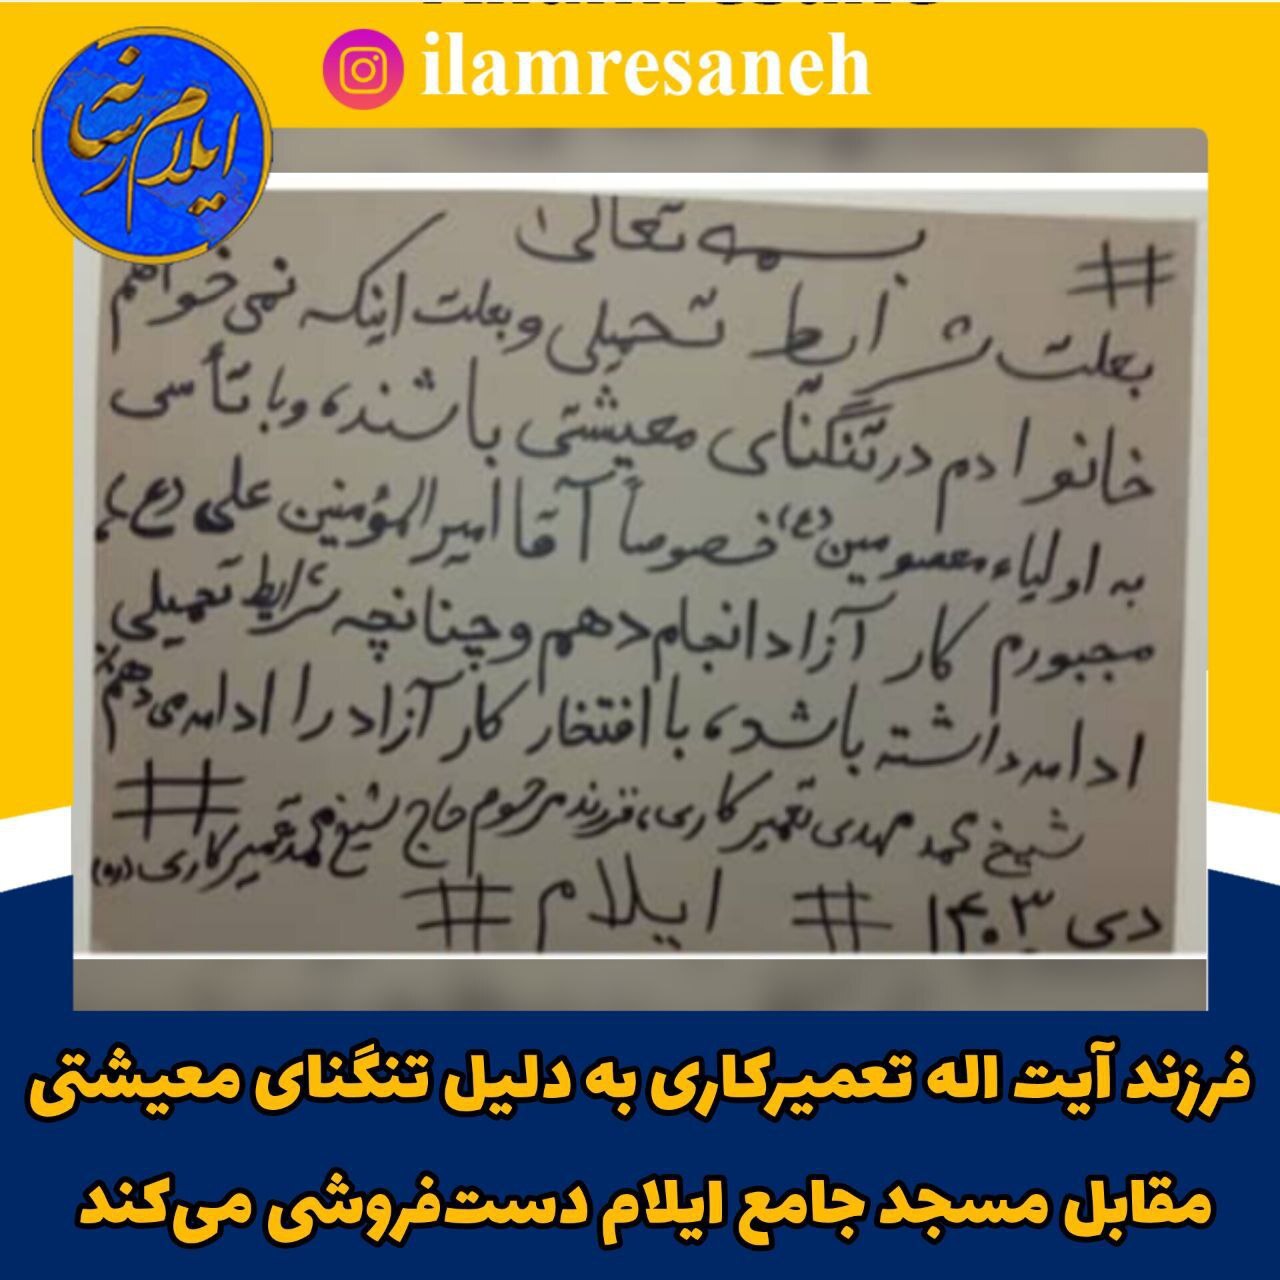 ilamresaneh
ایلام رسانه
بسمه تعالی
#
بعلت شرایط تحمیلی و بعلت اینکه نمی خواهم
خانوادم در تنگنای معیشتی باشند، و با تأسی
به اولیاء معصومین (ع) خصوصاً آقا امیرالمؤمنین علی (ع)،
مجبورم کار آزاد انجام دهم و چنانچه شرایط تحمیلی
ادامه داشته باشد، با افتخار کار آزاد را ادامه می دهم
شیخ محمد مهدی تعمیرکاری، فرزند مرحوم حاج شیخ محمد تعمیرکاری (ره) #
دی ۱۴۰۳ # ایلام #
فرزند آیت اله تعمیرکاری به دلیل تنگنای معیشتی
مقابل مسجد جامع ایلام دست‌فروشی می‌کند